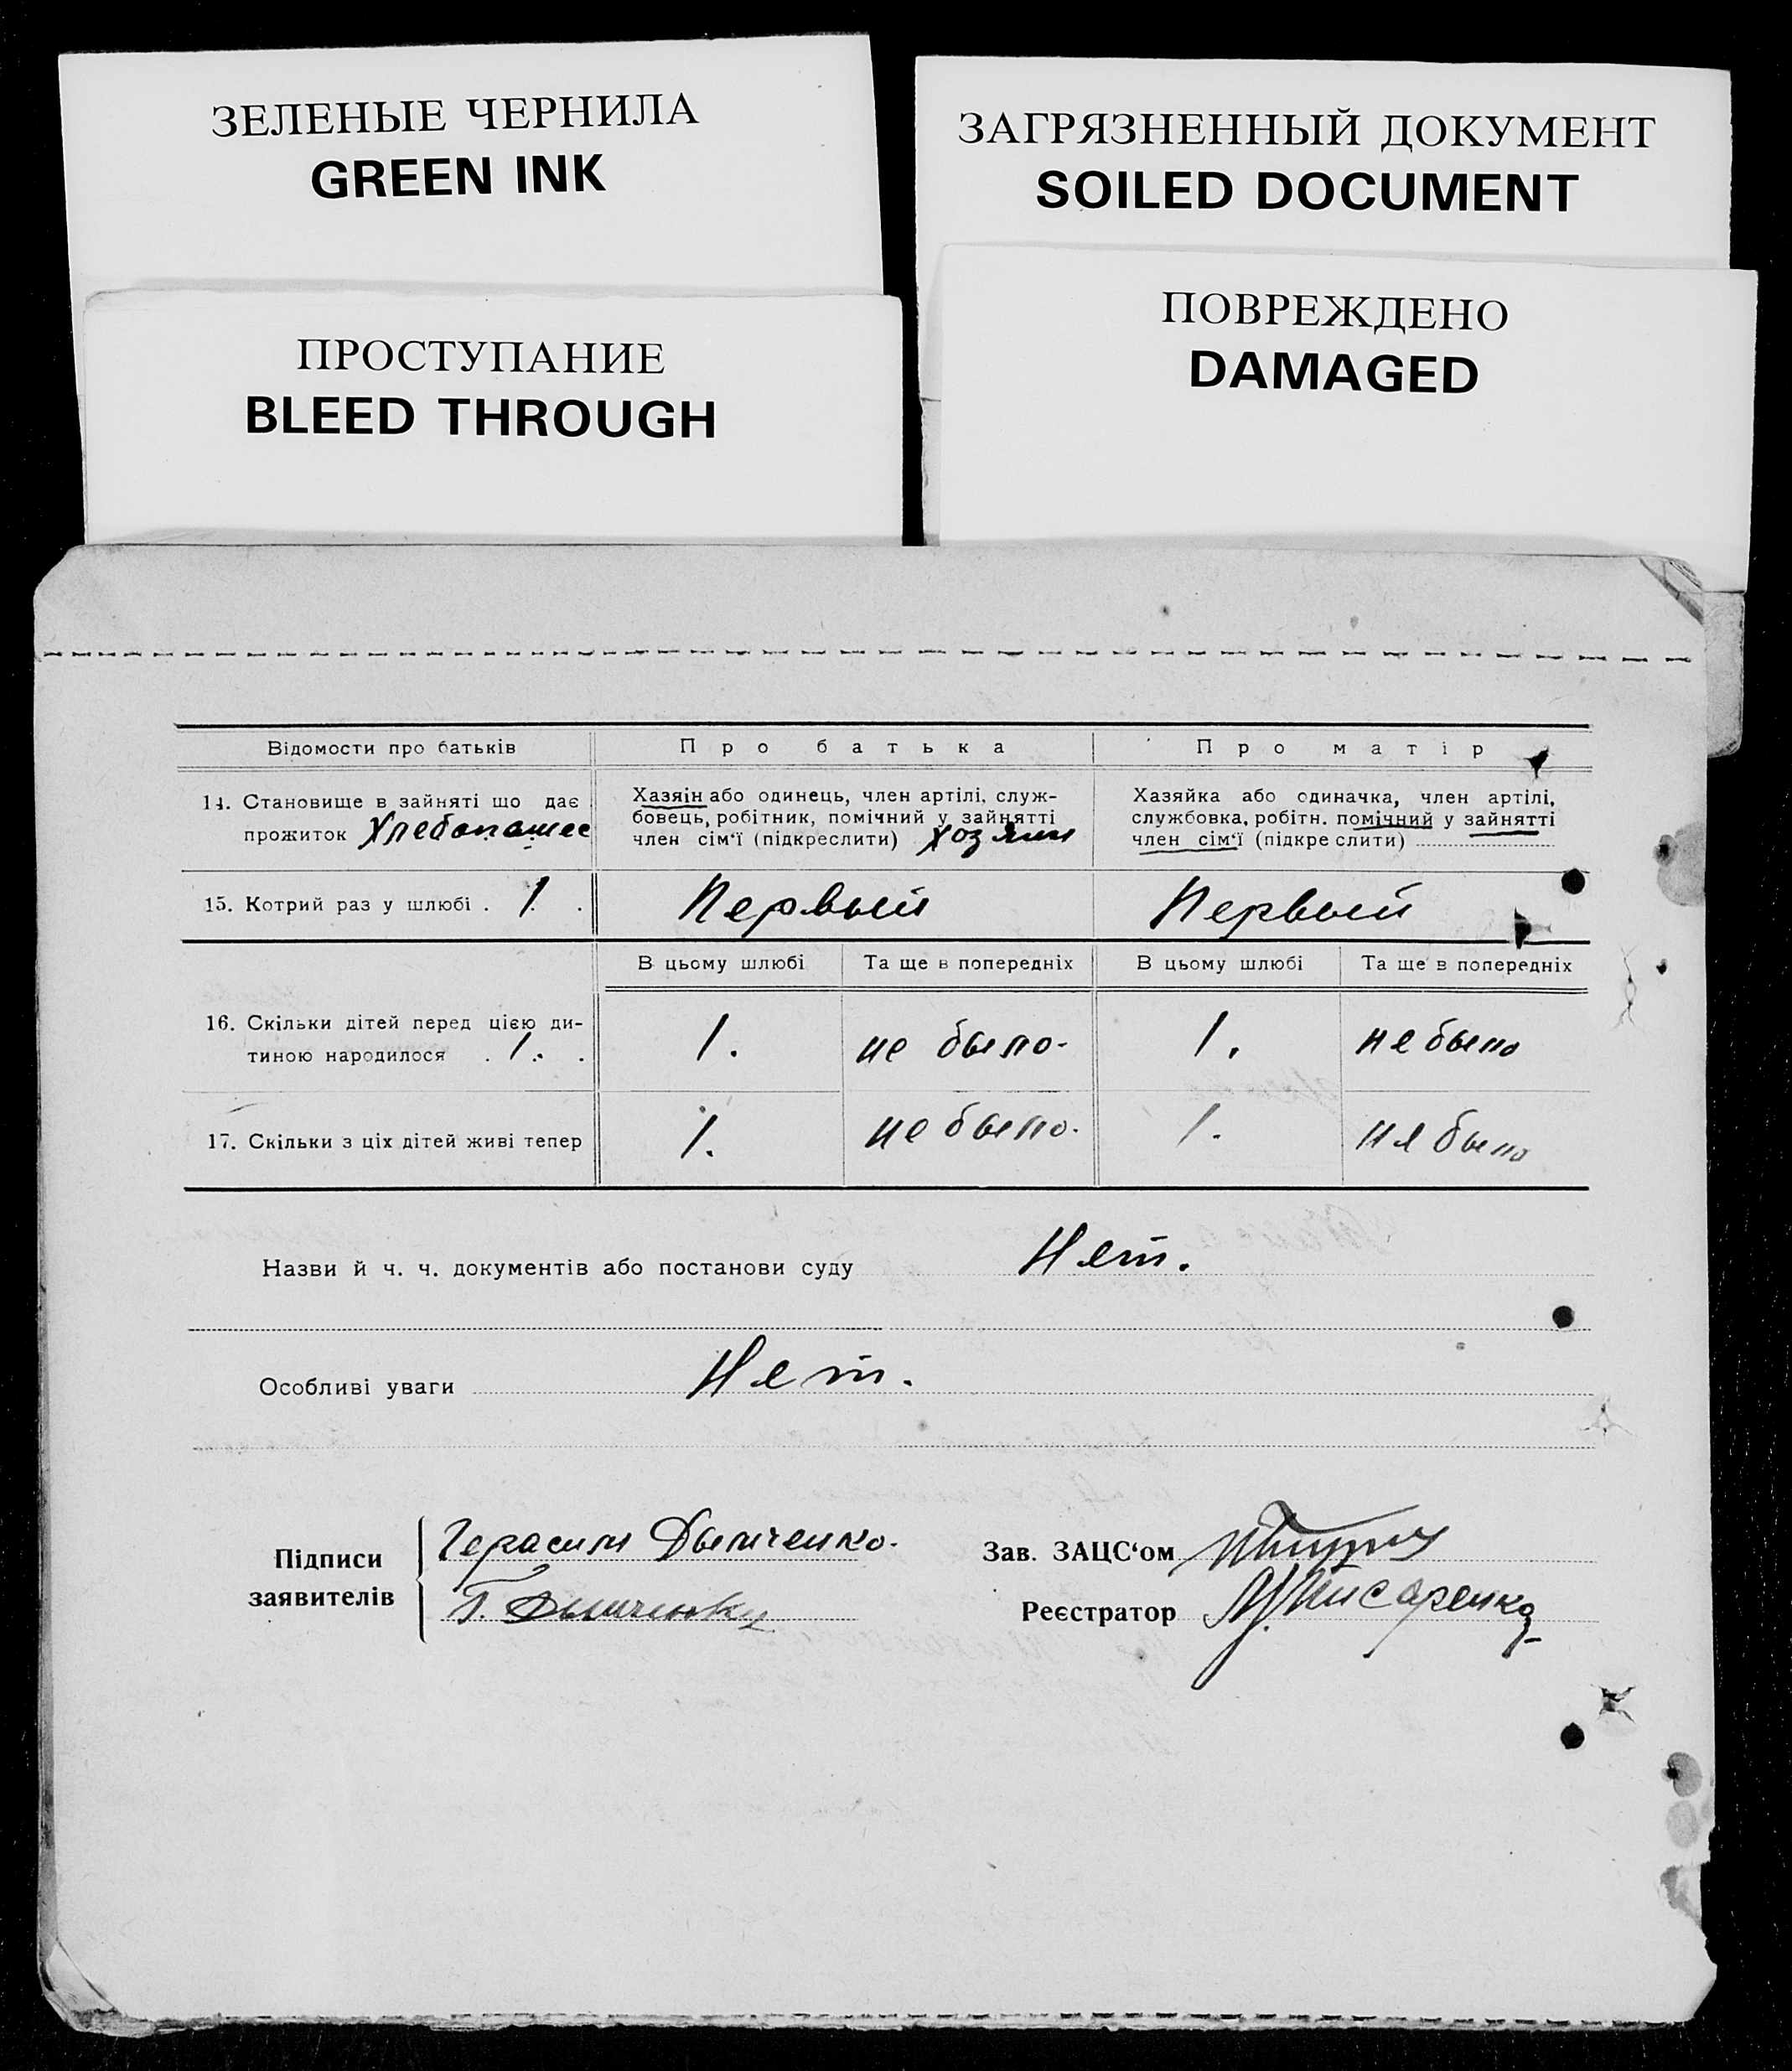 ЗЕЛЕНЫЕ ЧЕРНИЛА
GREEN INK
ЗАГРЯЗНЕННЫЙ ДОКУМЕНТ
SOILED DOCUMENT
ПРОСТУПАНИЕ
BLEED THROUGH
ПОВРЕЖДЕНО
DAMAGED
Відомости про батьків
Про батька
Про матір
14. Становище в зайняті що дає
прожиток Хлебопашес
Хазяін або одинець, член артілі, служ-
бовець, робітник, помічний у зайнятті
член сім'ї (підкреслити) хозяин
Хазяйка або одиначка, член артілі,
службовка, робітн. помічний у зайнятті
член сім'ї (підкреслити)
15. Котрий раз у шлюбі . 1 .
Первый
Первый
В цьому шлюбі
Та ще в попередніх
В цьому шлюбі
Та ще в попередніх
16. Скільки дітей перед цією ди-
тиною народилося . 1. .
1.
не было.
1.
не было
17. Скільки з ціх дітей живі тепер
1.
не было.
1.
не было
Назви й ч. ч. документів або постанови суду Нет.
Особливі уваги Нет.
Підписи
заявителів
Герасим Дымченко.
Г. Дымченко
Зав. ЗАЦС'ом
Реєстратор Писаренко